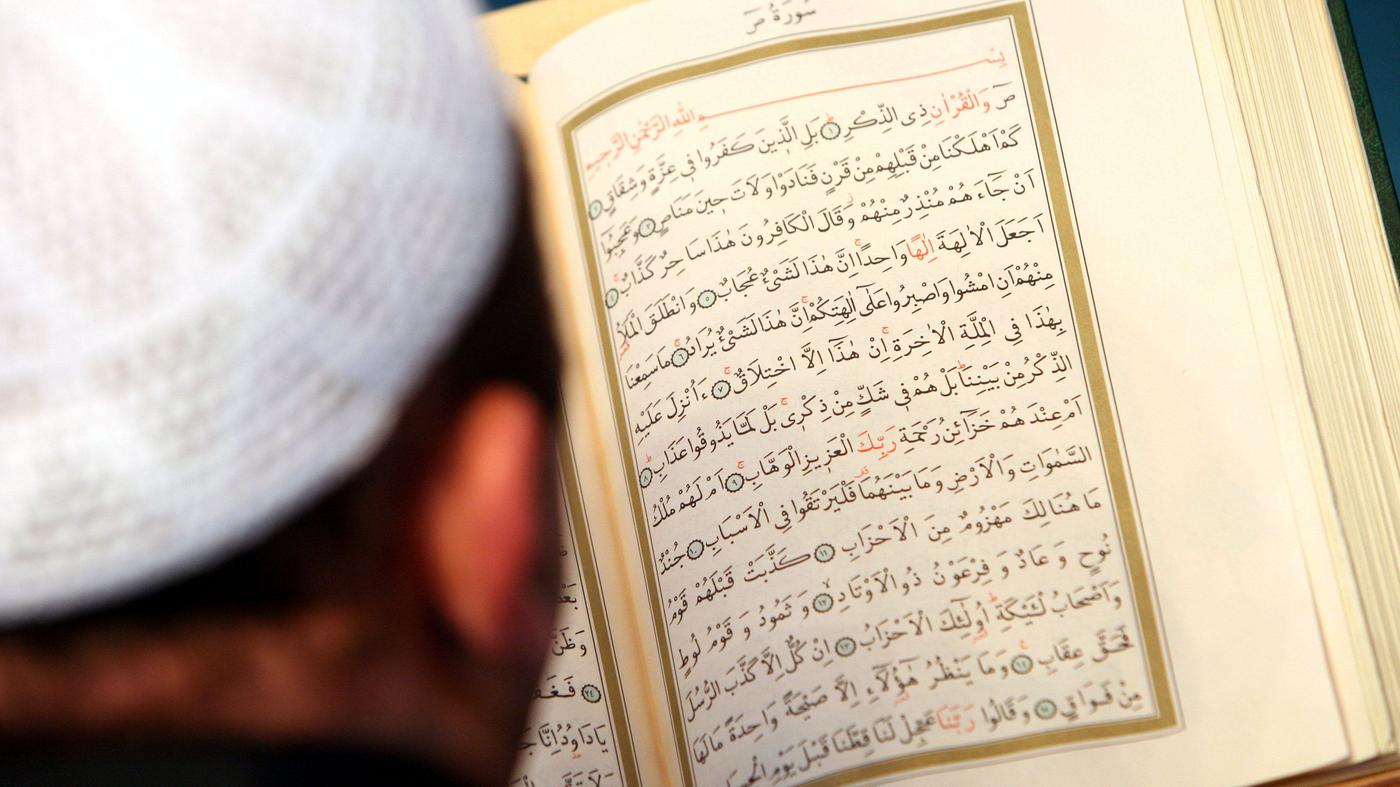 سُورَةُ صٓ
بِسْمِ اللهِ الرَّحْمٰنِ الرَّحِيمِ
صٓ وَالْقُرْاٰنِ ذِى الذِّكْرِ ١ بَلِ الَّذِينَ كَفَرُوا فِى عِزَّةٍ وَشِقَاقٍ ٢
كَمْ اَهْلَكْنَا مِنْ قَبْلِهِمْ مِنْ قَرْنٍ فَنَادَوْا وَلَاتَ حِينَ مَنَاصٍ ٣ وَعَجِبُوا
اَنْ جَٓاءَهُمْ مُنْذِرٌ مِنْهُمْ وَقَالَ الْكَافِرُونَ هٰذَا سَاحِرٌ كَذَّابٌ ٤
اَجَعَلَ الْاٰلِهَةَ اِلٰهًا وَاحِدًا اِنَّ هٰذَا لَشَىْءٌ عُجَابٌ ٥ وَانْطَلَقَ الْمَلَاُ
مِنْهُمْ اَنِ امْشُوا وَاصْبِرُوا عَلٰٓى اٰلِهَتِكُمْ اِنَّ هٰذَا لَشَىْءٌ يُرَادُ ٦ مَا سَمِعْنَا
بِهٰذَا فِى الْمِلَّةِ الْاٰخِرَةِ اِنْ هٰذَٓا اِلَّا اخْتِلَاقٌ ٧ ءَاُنْزِلَ عَلَيْهِ
الذِّكْرُ مِنْ بَيْنِنَا بَلْ هُمْ فِى شَكٍّ مِنْ ذِكْرِى بَلْ لَمَّا يَذُوقُوا عَذَابِ ٨
اَمْ عِنْدَهُمْ خَزَٓائِنُ رَحْمَةِ رَبِّكَ الْعَزِيزِ الْوَهَّابِ ٩ اَمْ لَهُمْ مُلْكُ
السَّمٰوَاتِ وَالْاَرْضِ وَمَا بَيْنَهُمَا فَلْيَرْتَقُوا فِى الْاَسْبَابِ ١٠ جُنْدٌ
مَا هُنَالِكَ مَهْزُومٌ مِنَ الْاَحْزَابِ ١١ كَذَّبَتْ قَبْلَهُمْ قَوْمُ
نُوحٍ وَعَادٌ وَفِرْعَوْنُ ذُو الْاَوْتَادِ ١٢ وَثَمُودُ وَقَوْمُ لُوطٍ
وَاَصْحَابُ لْـَٔيْكَةِ اُولٰٓئِكَ الْاَحْزَابُ ١٣ اِنْ كُلٌّ اِلَّا كَذَّبَ الرُّسُلَ
فَحَقَّ عِقَابِ ١٤ وَمَا يَنْظُرُ هٰٓؤُلَٓاءِ اِلَّا صَيْحَةً وَاحِدَةً مَا لَهَا
مِنْ فَوَاقٍ ١٥ وَقَالُوا رَبَّنَا عَجِّلْ لَنَا قِطَّنَا قَبْلَ يَوْمِ الْحِسَابِ
وَظَنَّ
٢٤ فَغَفَ
يَا دَاوُدُ اِنَّا جَ